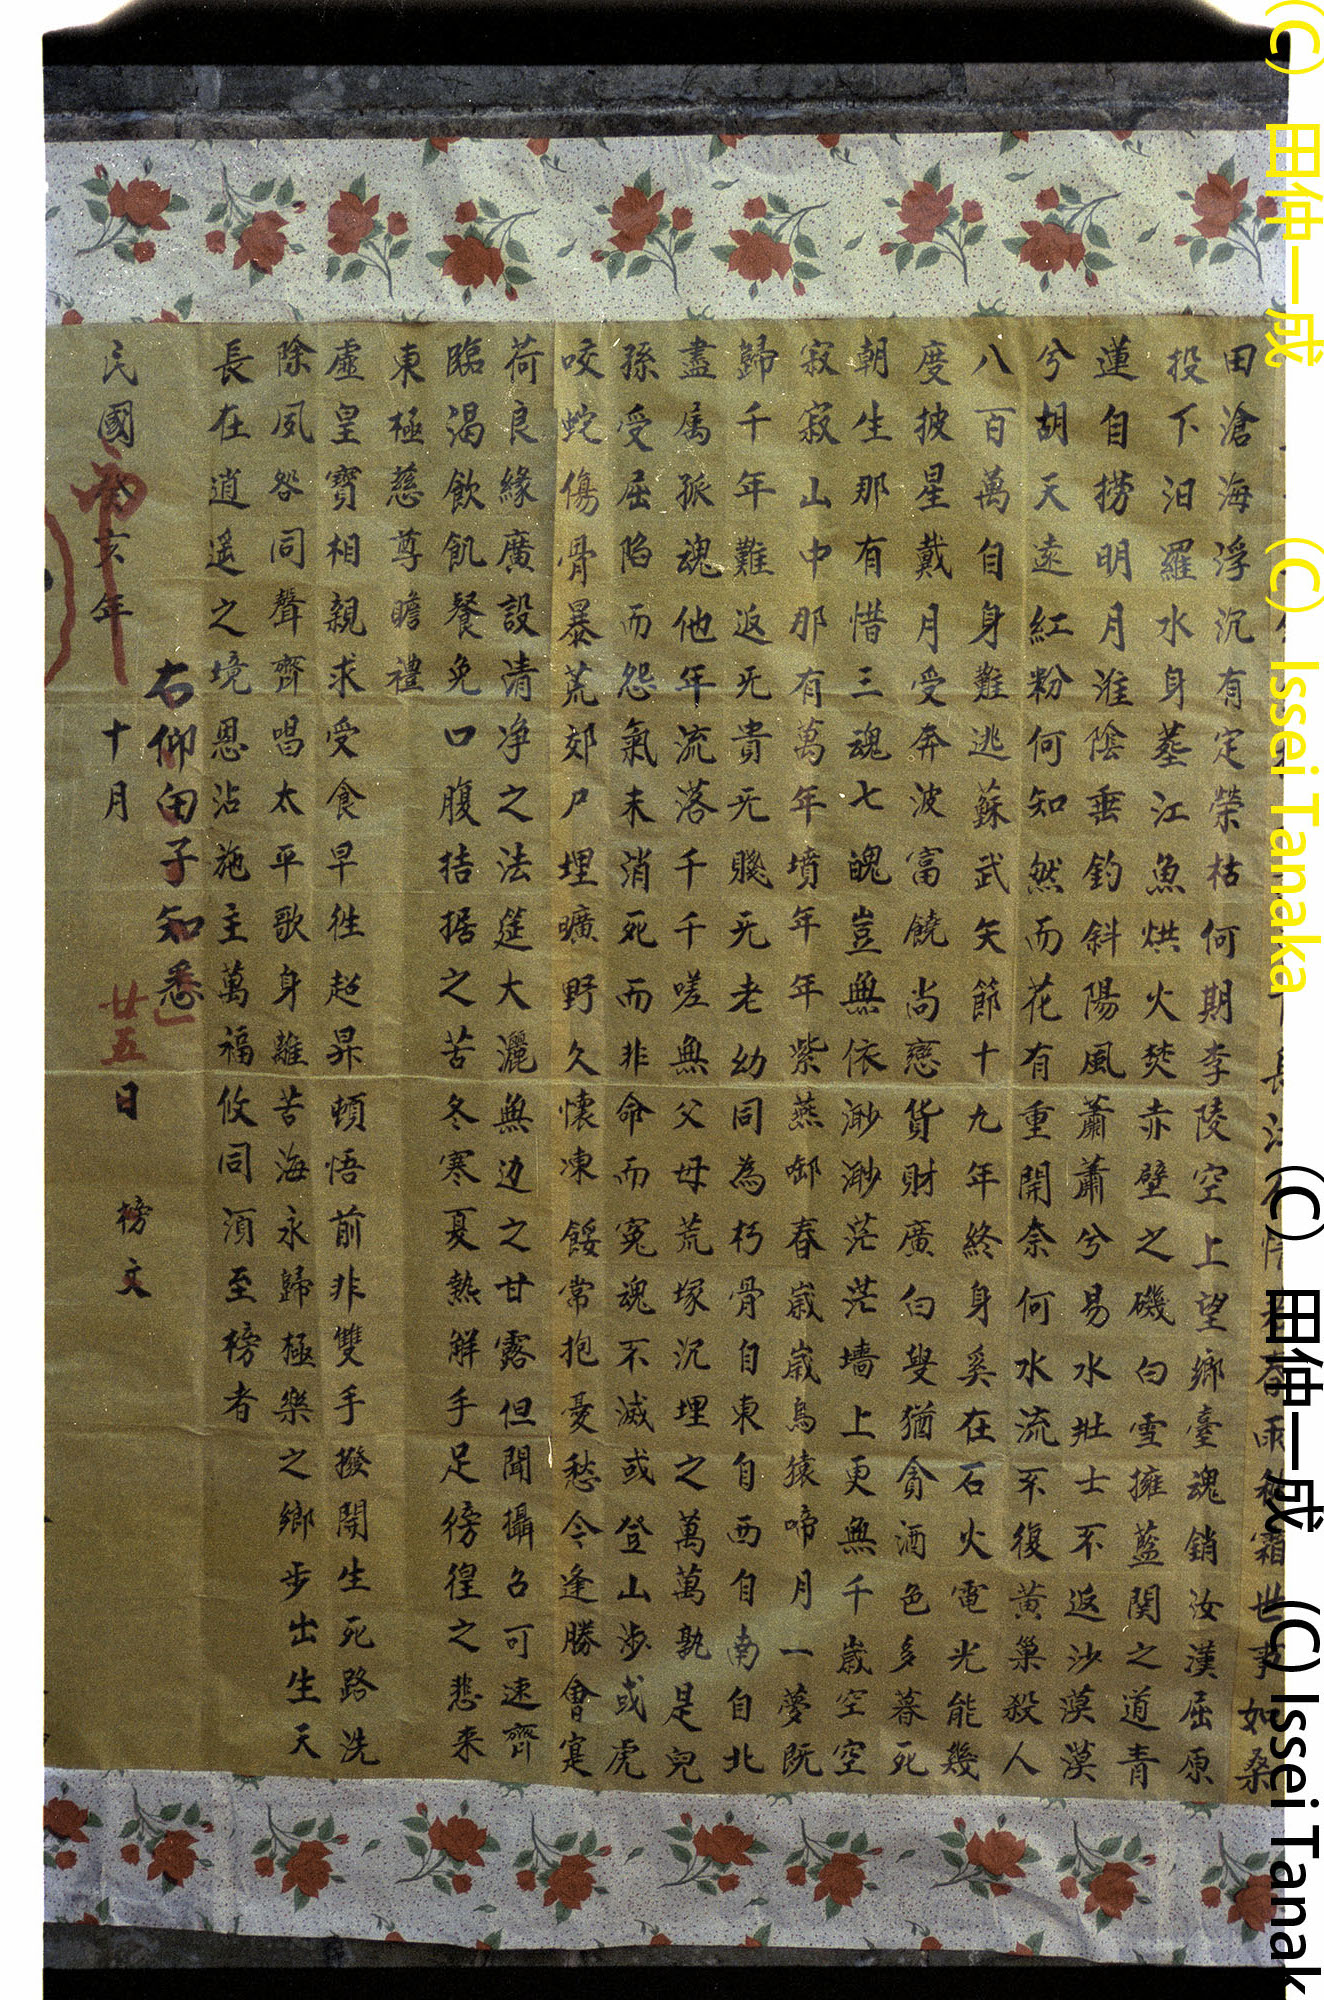 霜世事如桑
田滄海浮沉有定榮枯何期李陵空上望鄉臺魂銷汝漢屈原
投下汨羅水身塟江魚烘火焚赤壁之磯白雪擁藍関之道青
蓮自撈明月淮陰垂釣斜陽風蕭蕭兮易水壯士不返沙漠漠
兮胡天遠紅粉何知然而花有重開奈何水流不復黃巢殺人
八百萬自身難逃蘇武矢節十九年終身奚在石火電光能幾
度披星戴月受奔波富饒尚戀貨財廣白叟猶貪酒色多暮死
朝生那有惜三魂七魄豈無依渺渺茫茫墻上更無千歲空空
寂寂山中那有萬年墳年年紫燕啣春歲歲烏猿啼月一夢既
歸千年難返无貴无賤无老幼同為朽骨自東自西自南自北
盡属孤魂他年流落千千嗟無父母荒塚沉埋之萬萬孰是兒
孫受屈陷而怨氣未消死而非命而冤魂不滅或登山涉或虎
咬蛇傷骨暴荒郊尸埋曠野久懷凍餒常抱憂愁今逢勝會寔
荷良緣廣設清净之法筵大灑無边之甘露但聞攝召可速齊
臨渴飲飢餐免口腹拮据之苦冬寒夏熱觧手足徬徨之悲来
東極慈尊瞻禮
虛皇寶相親求受食早徃超昇頓悟前非雙手撥開生死路洗
除夙咎同聲齊唱太平歌身離苦海永歸極樂之鄉步出生天
長在逍遥之境恩沾施主萬福攸同須至榜者
右仰甶子知悉
民國亥年十月廿五日 榜文
(C) 田仲一成 (C) Issei Tanaka
(C) 田仲一成 (C) Issei Tanak